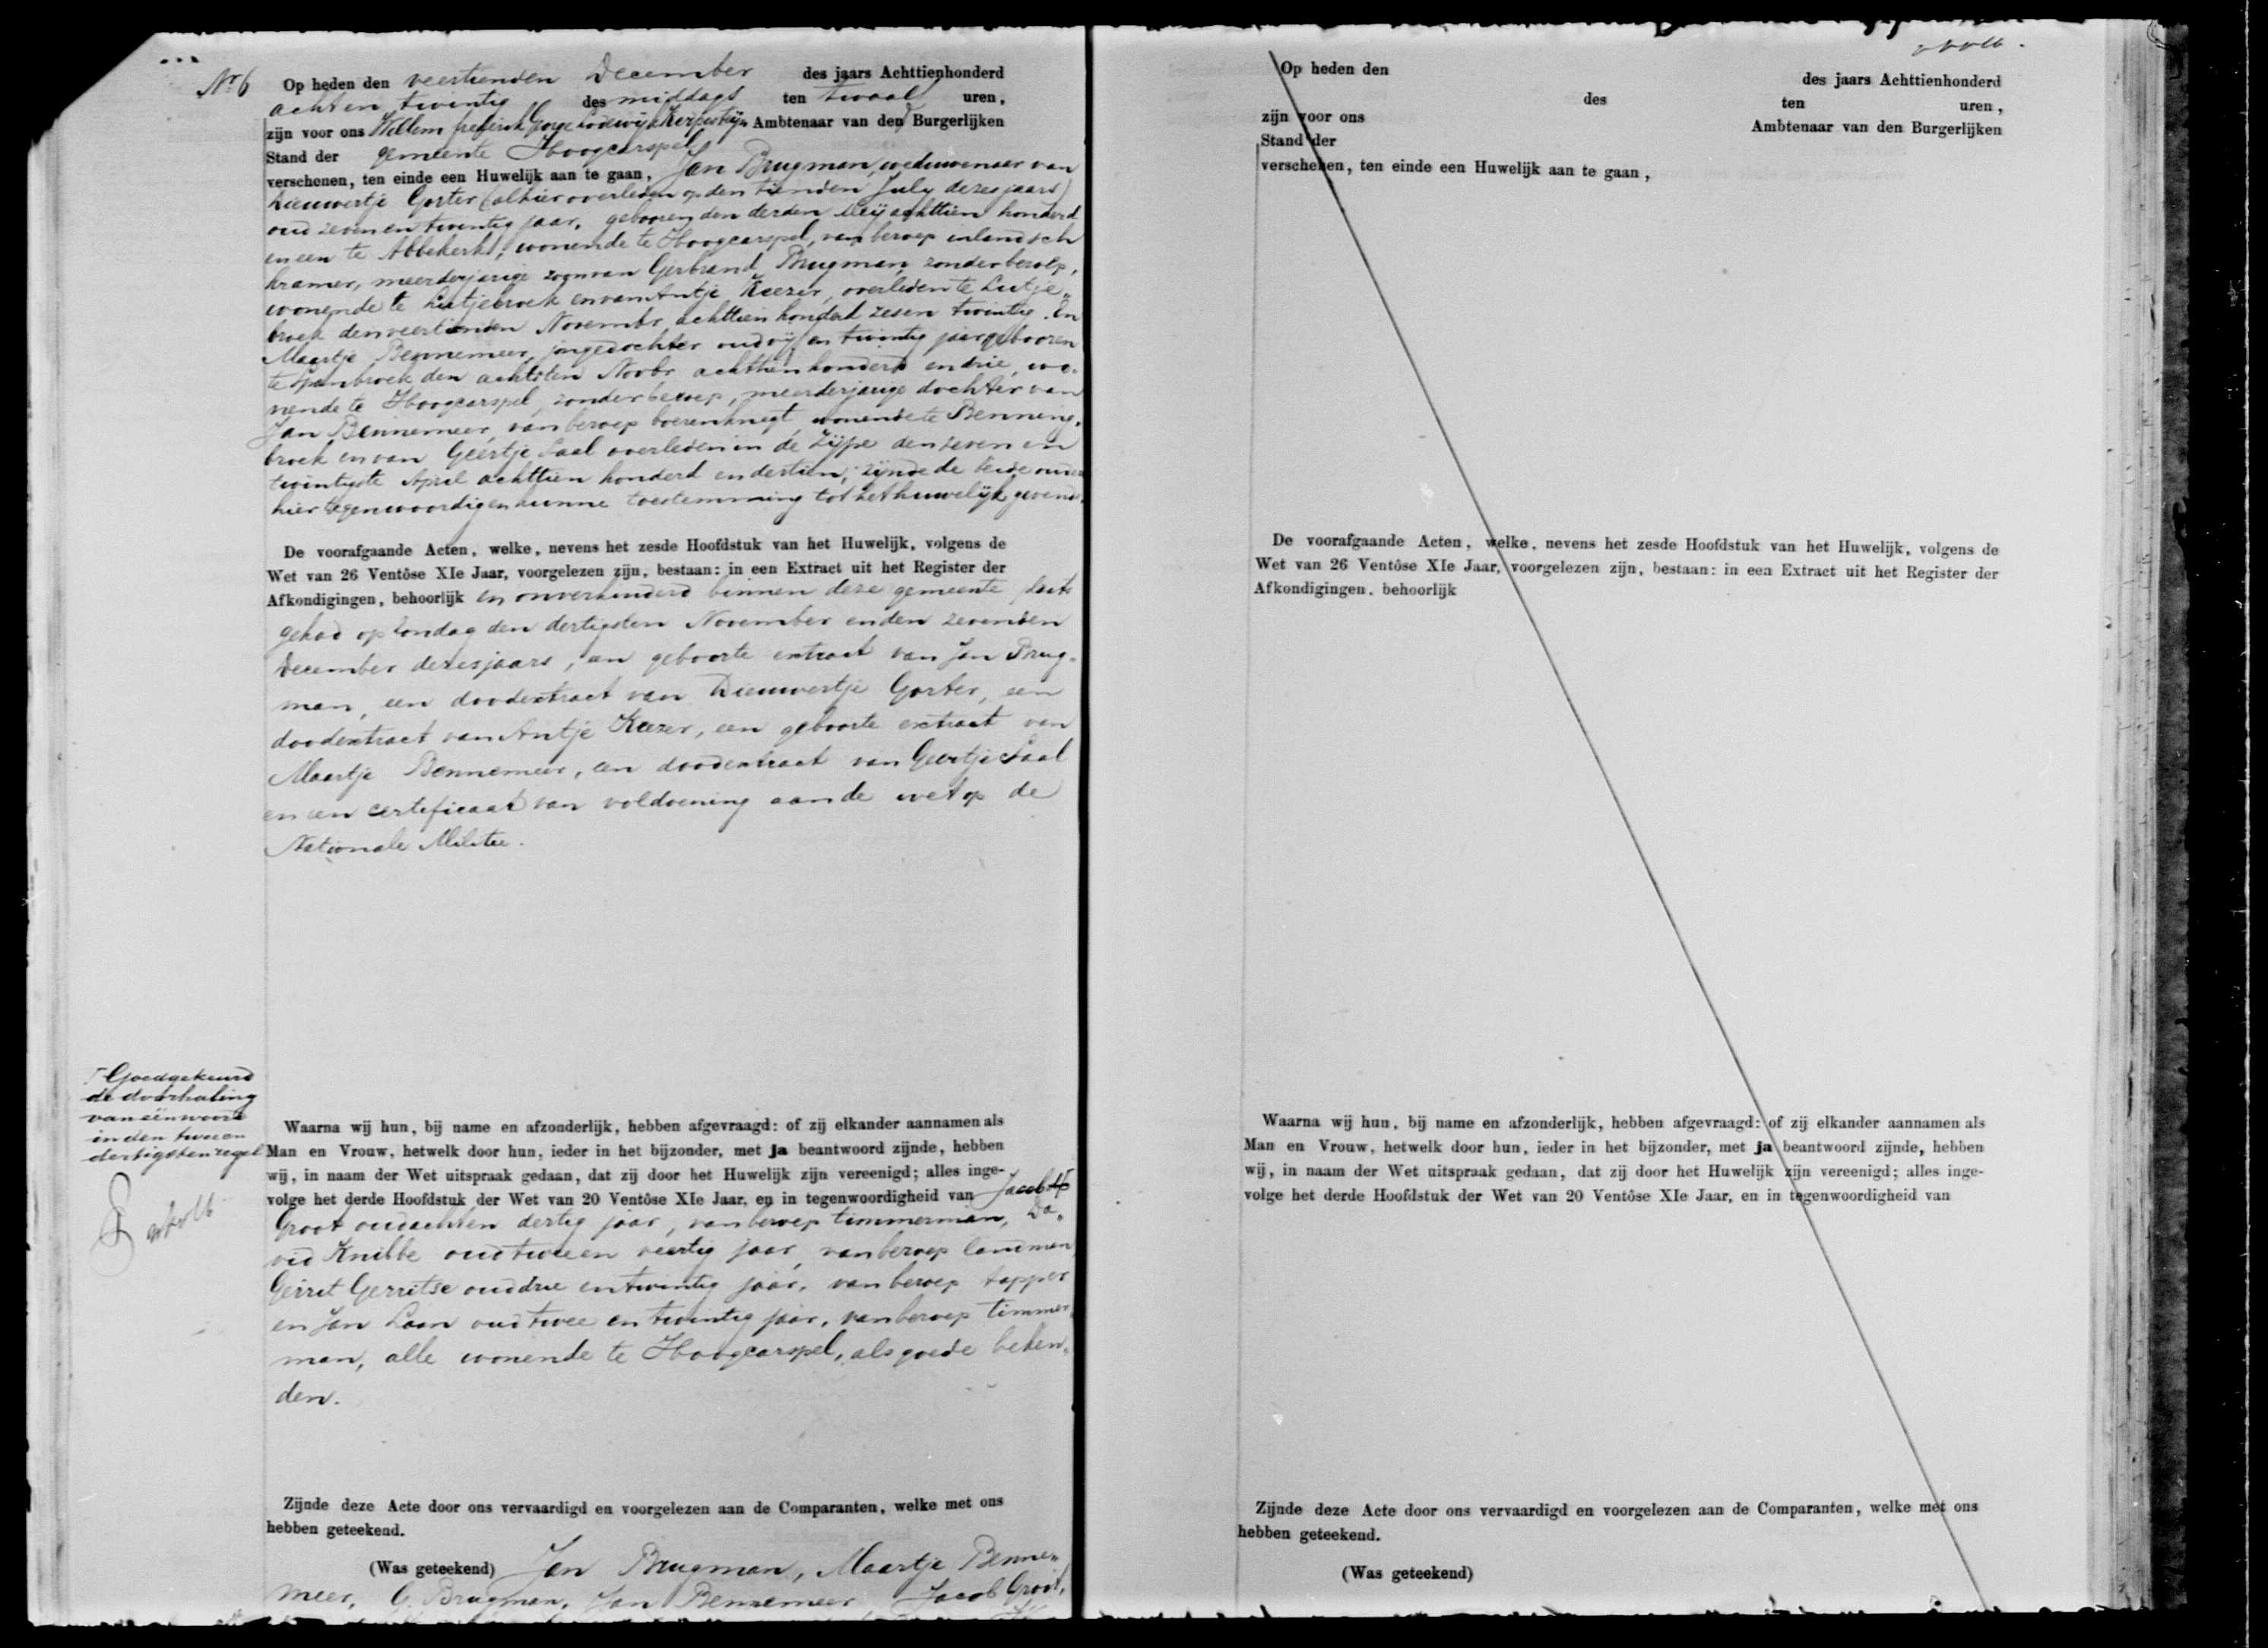 No 6
Op heden den veertienden December des jaars Achttienhonderd
acht en twintig des middags ten twaalf uren,
zijn voor ons Willem frederik George Lodewijk Ambtenaar van den Burgerlijken
Stand der gemeente Hoogcarspel
verschenen, ten einde een Huwelijk aan te gaan, Jan Brugman, weduwenaar van
Dieuwertje Gorter (alhier overleden op den tienden July dezes jaars)
oud zeven en twintig jaar, gebooren den derden Meij achttien honderd
en een te Abbekerk, wonende te Hoogcarspel, van beroep inlandsch
kramer, meerderjarige zoon van Gerbrand Brugman, zonder beroep,
wonende te Lutjebroek en van Antje Keezer, overleden te Lutje„
broek den veertienden Novembr achttien honderd zes en twintig. En
Maartje Bennemeer, jongedochter oud vijf en twintig jaar gebooren
te Spanbroek den achtsten Novbr achttien honderd en drie, wo„
nende te Hoogcarspel, zonder beroep, meerderjarige dochter van
Jan Bennemeer, van beroep boerenknegt, wonende te Benning„
broek en van Geertje Saal overleden in de Zijpe den zeven en
twintigste April achttien honderd en dertien; zijnde de beide ouders
hier tegenwoordig en hunne toestemming tot het huwelijk gevende.
De voorafgaande Acten, welke, nevens het zesde Hoofdstuk van het Huwelijk, volgens de
Wet van 26 Ventôse XIe Jaar, voorgelezen zijn, bestaan: in een Extract uit het Register der
Afkondigingen, behoorlijk en onverhinderd binnen deze gemeente plaats
gehad op Zondag den dertigsten November en den zevenden
December dezes jaars, een geboorte extract van Jan Brug„
man, een doodextract van Dieuwertje Gorter, een
doodextract van Antje Keezer, een geboorte extract van
Maartje Bennemeer, een doodextract van Geertje Saal
en een certificaat van voldoening aan de wet op de
Nationale Militie.
Goedgekeurd
de doorhaling
van één woord
in den twee en
dertigsten regel
Waarna wij hun, bij name en afzonderlijk, hebben afgevraagd: of zij elkander aannamen als
Man en Vrouw, hetwelk door hun, ieder in het bijzonder, met ja beantwoord zijnde, hebben
wij, in naam der Wet uitspraak gedaan, dat zij door het Huwelijk zijn vereenigd; alles inge-
volge het derde Hoofdstuk der Wet van 20 Ventôse XIe Jaar, en in tegenwoordigheid van Jacob
Groot oud acht en dertig jaar, van beroep timmerman, Da„
vid Knibbe oud twee en veertig jaar, van beroep landman,
Gerrit Gerritse oud drie en twintig jaar, van beroep tapper
en Jan Laan oud twee en twintig jaar, van beroep timmer„
man, alle wonende te Hoogcarspel, als goede beken„
den.
Zijnde deze Acte door ons vervaardigd en voorgelezen aan de Comparanten, welke met ons
hebben geteekend.
(Was geteekend) Jan Brugman, Maartje Benne„
meer, G. Brugman, Jan Bennemeer Jacob Groot,
Op heden den des jaars Achttienhonderd
des ten uren,
zijn voor ons Ambtenaar van den Burgerlijken
Stand der
verschenen, ten einde een Huwelijk aan te gaan,
De voorafgaande Acten, welke, nevens het zesde Hoofdstuk van het Huwelijk, volgens de
Wet van 26 Ventôse XIe Jaar, voorgelezen zijn, bestaan: in een Extract uit het Register der
Afkondigingen, behoorlijk
Waarna wij hun, bij name en afzonderlijk, hebben afgevraagd: of zij elkander aannamen als
Man en Vrouw, hetwelk door hun, ieder in het bijzonder, met ja beantwoord zijnde, hebben
wij, in naam der Wet uitspraak gedaan, dat zij door het Huwelijk zijn vereenigd; alles inge-
volge het derde Hoofdstuk der Wet van 20 Ventôse XIe Jaar, en in tegenwoordigheid van
Zijnde deze Acte door ons vervaardigd en voorgelezen aan de Comparanten, welke met ons
hebben geteekend.
(Was geteekend)